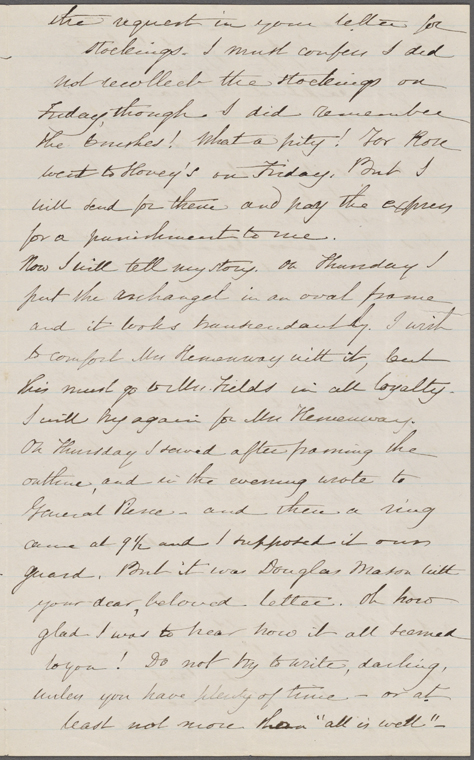 the request in your letter for
stockings. I must confess I did
not recollect the stockings on
Friday, though I did remember
the brushes! What a pity! For Rose
went to Hovey's on Friday. But I
will send for them and pay the express
for a punishment to me.
Now I will tell my story. On Thursday I
put the archangel in an oval frame,
and it looks transcendantly. I wish
to comfort Mrs Hemenway with it, but
this must go to Mrs Fields in all loyalty.
I will try again for Mrs Hemenway.
On Thursday I sewed after framing the
outline, and in the evening wrote to
General Pierce - and then a ring
came at 9½ and I supposed it our
guard. But it was Douglas Mason with
your dear, beloved letter. Oh how
glad I was to hear how it all seemed
to you! Do not try to write, darling,
unless you have plenty of time - or at
least not more than "all is well" -